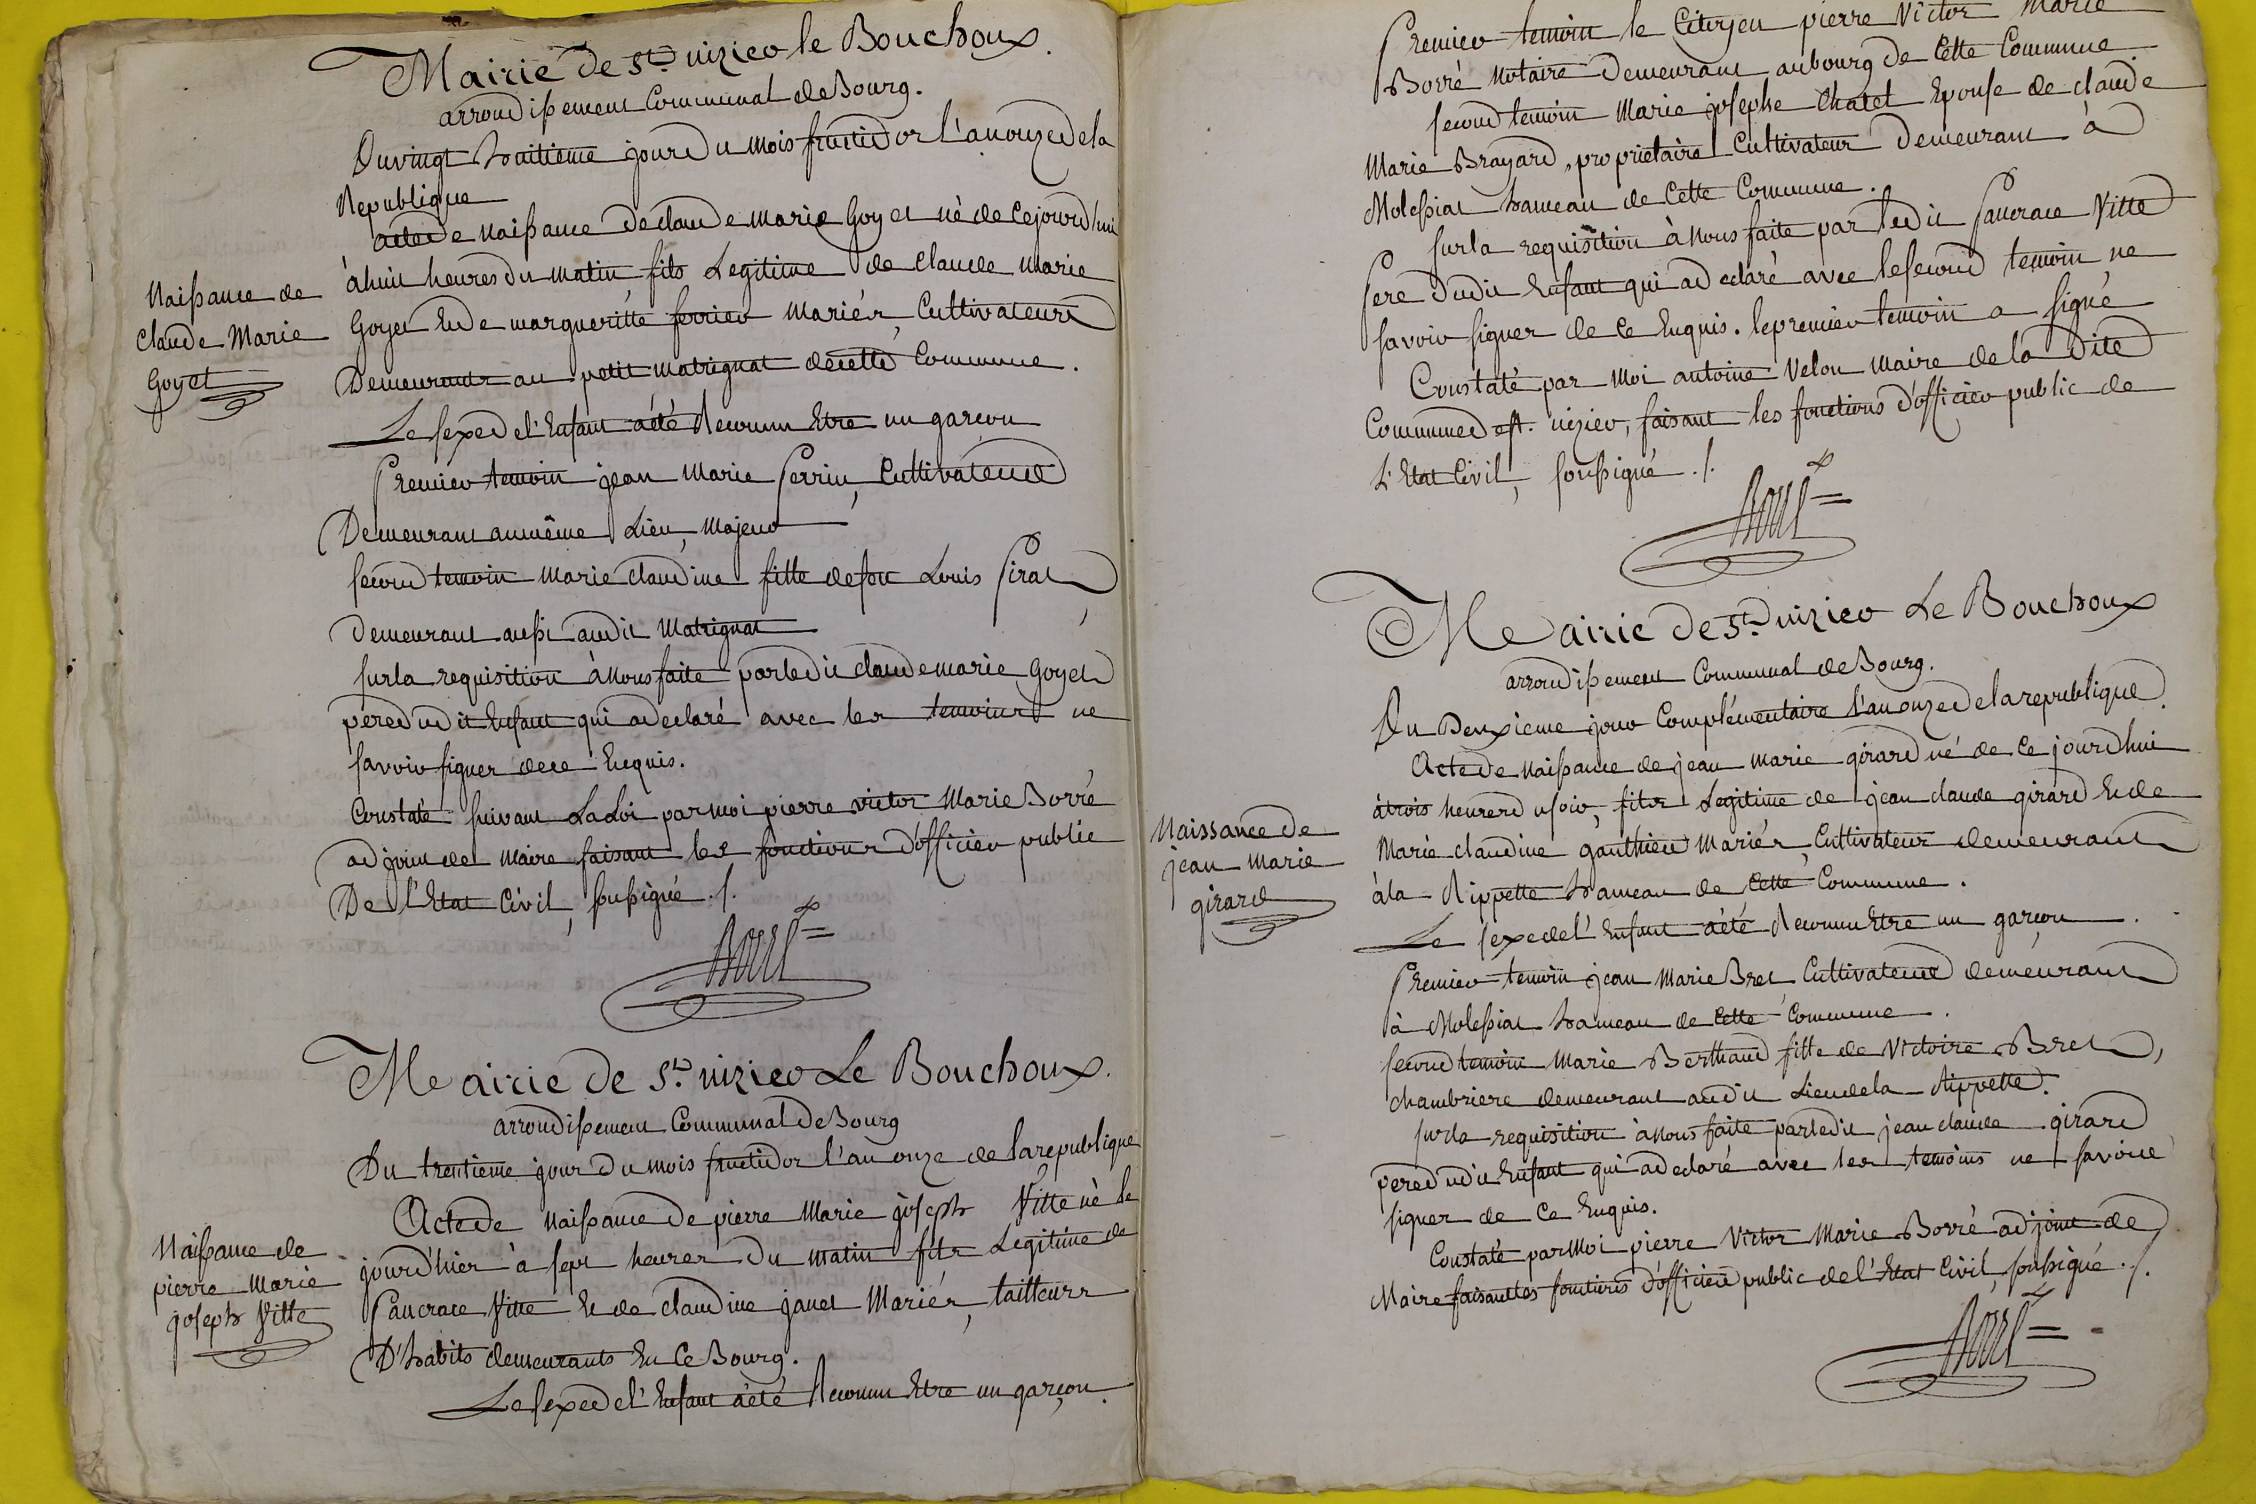 Mairie de St. nizier le Bouchoux.
arrondissement Communal de Bourg.
Du vingt huitieme jour du mois fructidor l'an onze de la
Republique
acte de Naissance de claude marie Goyet né de Cejourd'hui
à huit heures du matin fils Legitime de Claude marie
Goyet Et de margueritte ferrier Mariés, Cultivateurs
Demeurants au petit matrignat de cette Commune.
Le sexe de l'Enfant a été Reconnu Etre un garçon
Naissance de
Claude Marie
Goyet
Premier temoin jean Marie Perrin, Cultivateur
Demeurant au même Lieu, Majeur
second temoin Marie claudine fille de feu Louis Pirat
Demeurant aussi audit Matrignat
sur la requisition à Nous faite par ledit claude marie Goyet
pere dudit Enfant qui a declaré avec les temoins ne
savoir signer de ce Enquis.
Constaté suivant La Loi par moi pierre victor Marie Borré
adjoint de Maire faisant les fonctions d'officier public
De l'Etat Civil, soussigné ./.
Borré
Mairie de St. nizier Le Bouchoux.
arrondissement Communal De Bourg
Du trentieme jour Du mois fructidor l'an onze de la republique
Acte de Naissance de pierre Marie joseph Vitte nè le
jourd'hier à sept heures du matin fils Legitime de
Pancrace Vitte Et de claudine janet Mariés, tailleurs
D'habits demeurants En Ce Bourg.
Le sexe de l'Enfant a été Reconnu Etre un garçon.
Naissance de
pierre Marie
joseph Vitte
Premier temoin le Citoyen pierre Victor Marie
Borré Notaire Demeurant au bourg de Cette Commune
second temoin Marie josephe Chatel Epouse de claude
Marie Brayard, proprietaire Cultivateur Demeurant à
Molessiat hameau de Cette Commune.
sur la requisition à Nous faite par ledit Pancrace Vitte
Pere dudit Enfant qui a declaré avec le second temoin ne
savoir signer de Ce Enquis. le premier temoin a signé
Constaté par Moi antoine Velon Maire de la dite
Commune de st. nizier, faisant les fonctions d'officier public de
L'Etat Civil, soussigné ./.
Borré
Mairie de St. nizier Le Bouchoux
arrondissement Communal de Bourg.
Du Deuxieme jour Complémentaire l'an onze de la republique.
Acte de Naissance de jean marie girard né de Ce jourd'hui
à trois heures du soir, fils Legitime de jean claude girard Et de
Marie claudine gauthier Mariés, Cultivateur demeurants
à la Rippette hameau de Cette Commune.
Le sexe de l'Enfant a été Reconnu Etre un garçon.
Naissance de
jean Marie
girard
Premier temoin jean Marie Bret Cultivateur demeurant
à Molessiat hameau de Cette Commune.
second temoin Marie Berthaud fille de Victoire Bret,
chambriere demeurant audit Lieu de la Rippette.
sur la requisition à Nous faite par ledit jean claude girard
pere dudit Enfant qui a declaré avec les temoins ne savoir
signer de Ce Enquis.
Constaté par Moi pierre Victor Marie Borré adjoint de
Maire faisant les fonctions d'officier public de l'Etat Civil, soussigné ./.
Borré